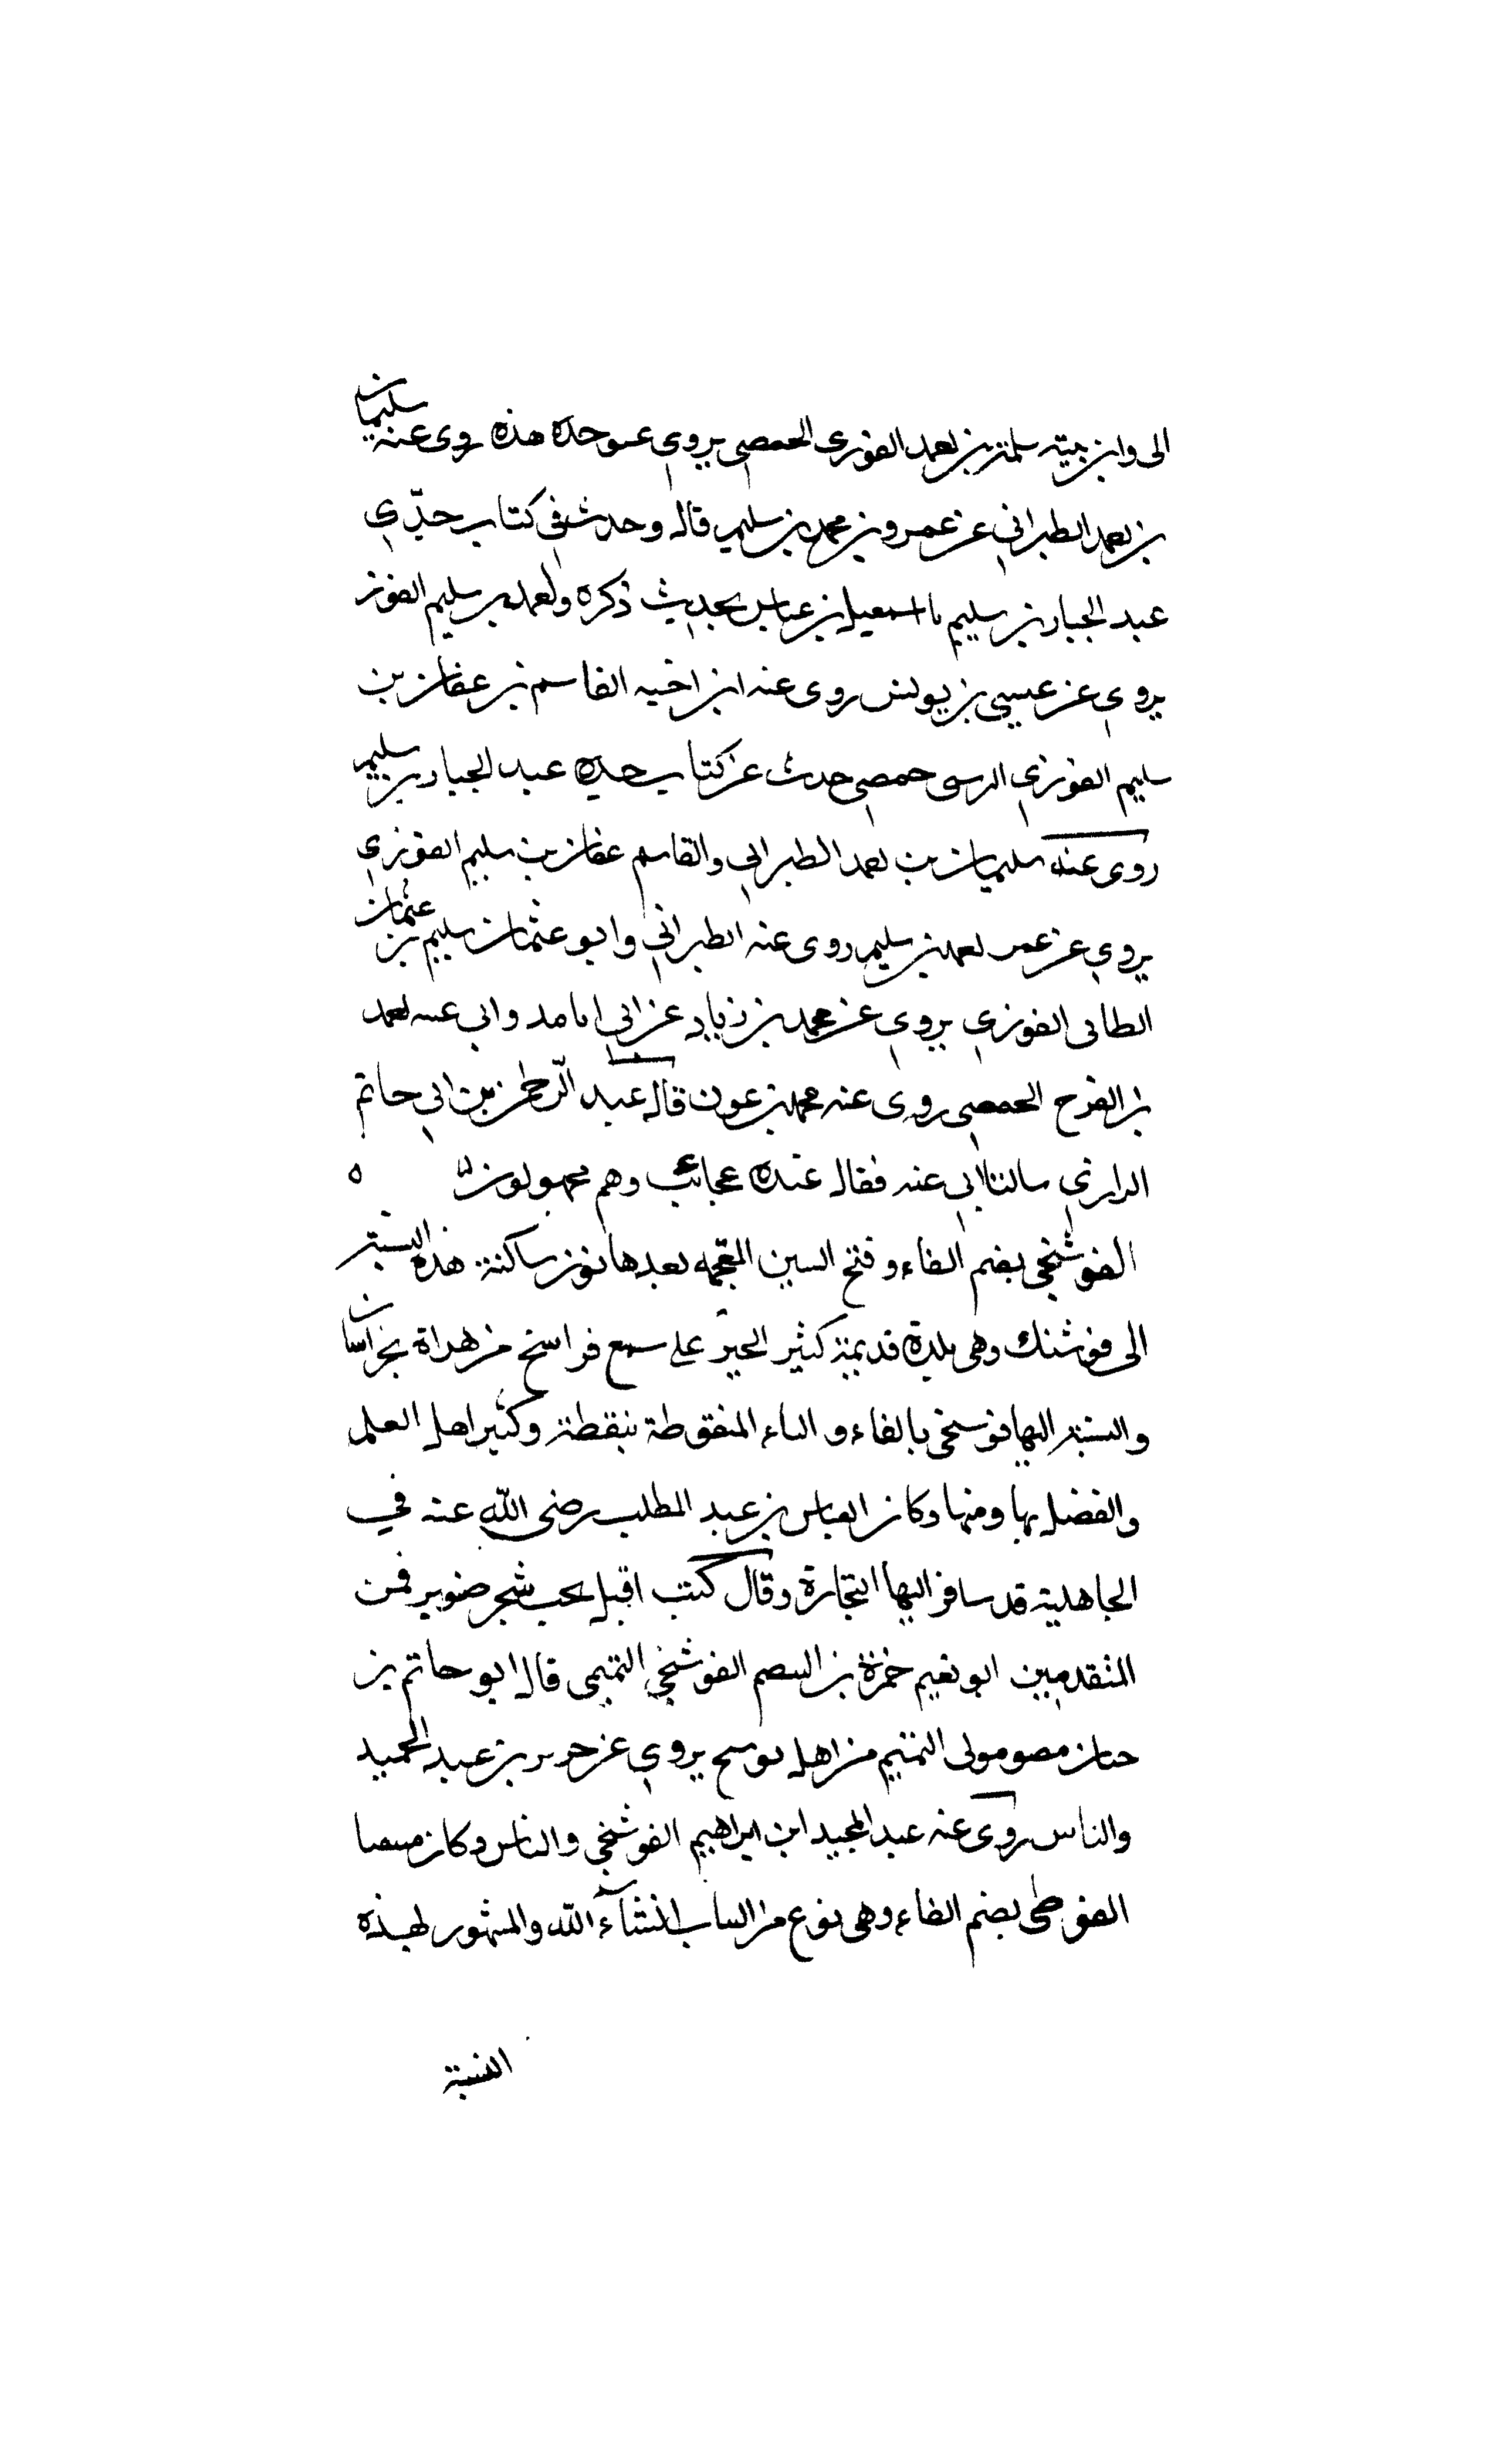 الى وابن بيته سلمة بن احمد الفوزي الحمصي يروي عن جده هذه روى عنه سليمان
بن احمد الطبراني عن عمرو بن محمد بن سليم قال وحدثني كتاب جدّي
عبد الجبار بن سليم نا اسمعيل بن عياش بحديث ذكره واحمد بن سليم الفوز
يروي عن عيسى بن يونس روى عنه ابن اخيه القاسم بن عفان بن
سليم الفوزي حمصي حدث عن كتاب جده عبد الجبار بن سليم
روى عنه سليمان بن احمد الطبراني والقاسم عفان بن سليم الفوزي
يروي عن عمر احمد بن سليم روى عنه الطبراني وابو عثمان سليم بن عثمان
الطائي الفوزي يروي عن محمد بن زياد عن ابي امامه وابي عتبه احمد
بن الفرج الحمصي روى عنه محمد بن عون قال عبد الرحمن بن ابي حاتم
الرازي سالت ابي عنه فقال عنده عجائب وهم مجهولون ه
الفوشنجي بضم الفاء وفتح السين المعجمه بعدها نون ساكنة هذه النسبة
الى فوشنك وهى بلدة قديمة كثير الخير على سبع فراسخ من هراة بخراسان
والنسبة اليها فوسنجي بالفاء والباء المنقوطة بنقطة وكثير اهل العلم
والفضل بها ومنها وكان العباس بن عبد المطلب رضى الله عنه في
الجاهلية قد سافر اليها التجارة وقال كنت اقبل تحت شجر صنوبر فمن
المتقدمين ابو نعيم حمزة بن الهيصم الفوشنجي التميمي قال ابو حاتم بن
حبان مولى التميم من اهل بوسنج يروي عن جرير بن عبد الحميد
والناس روى عنه عبد المجيد ابن ابراهيم الفوشنجي والناس وكان
الفوطي بضم الفاء وهى نوع من الثياب انشاء الله والمشهور لهذه
النسبة